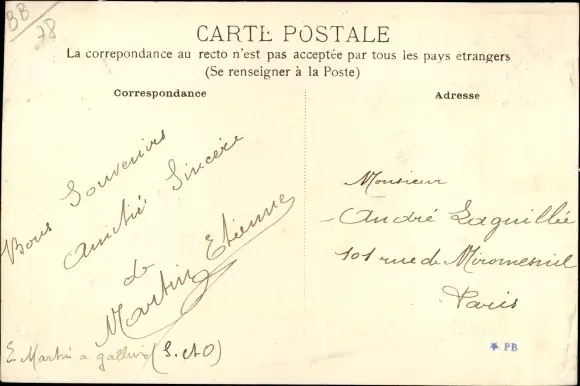 BB
78
CARTE POSTALE
La correpondance au recto n'est pas acceptée par tous les pays étrangers
(Se renseigner à la Poste)
Correspondance
Bons Souvenirs
Amitié Sincère
de
Martin Etienne
E. Martin a (S. et O)
Adresse
Monsieur
André Laguillée
101 rue de Miromesnil
Paris
* PB